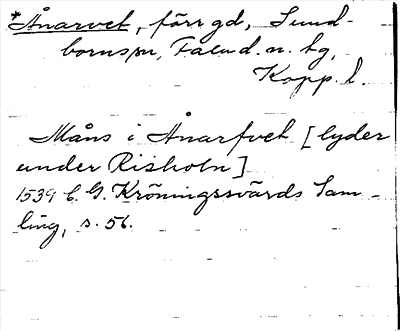 *Ånarvet, förr gd, Sund-
borns sn, Falu d. n. tg,
Kopp. l.
Måns i Ånarfvet [lyder
under Risholn]
1539 C. G. Kröningssvärds Sam-
ling, s. 56.